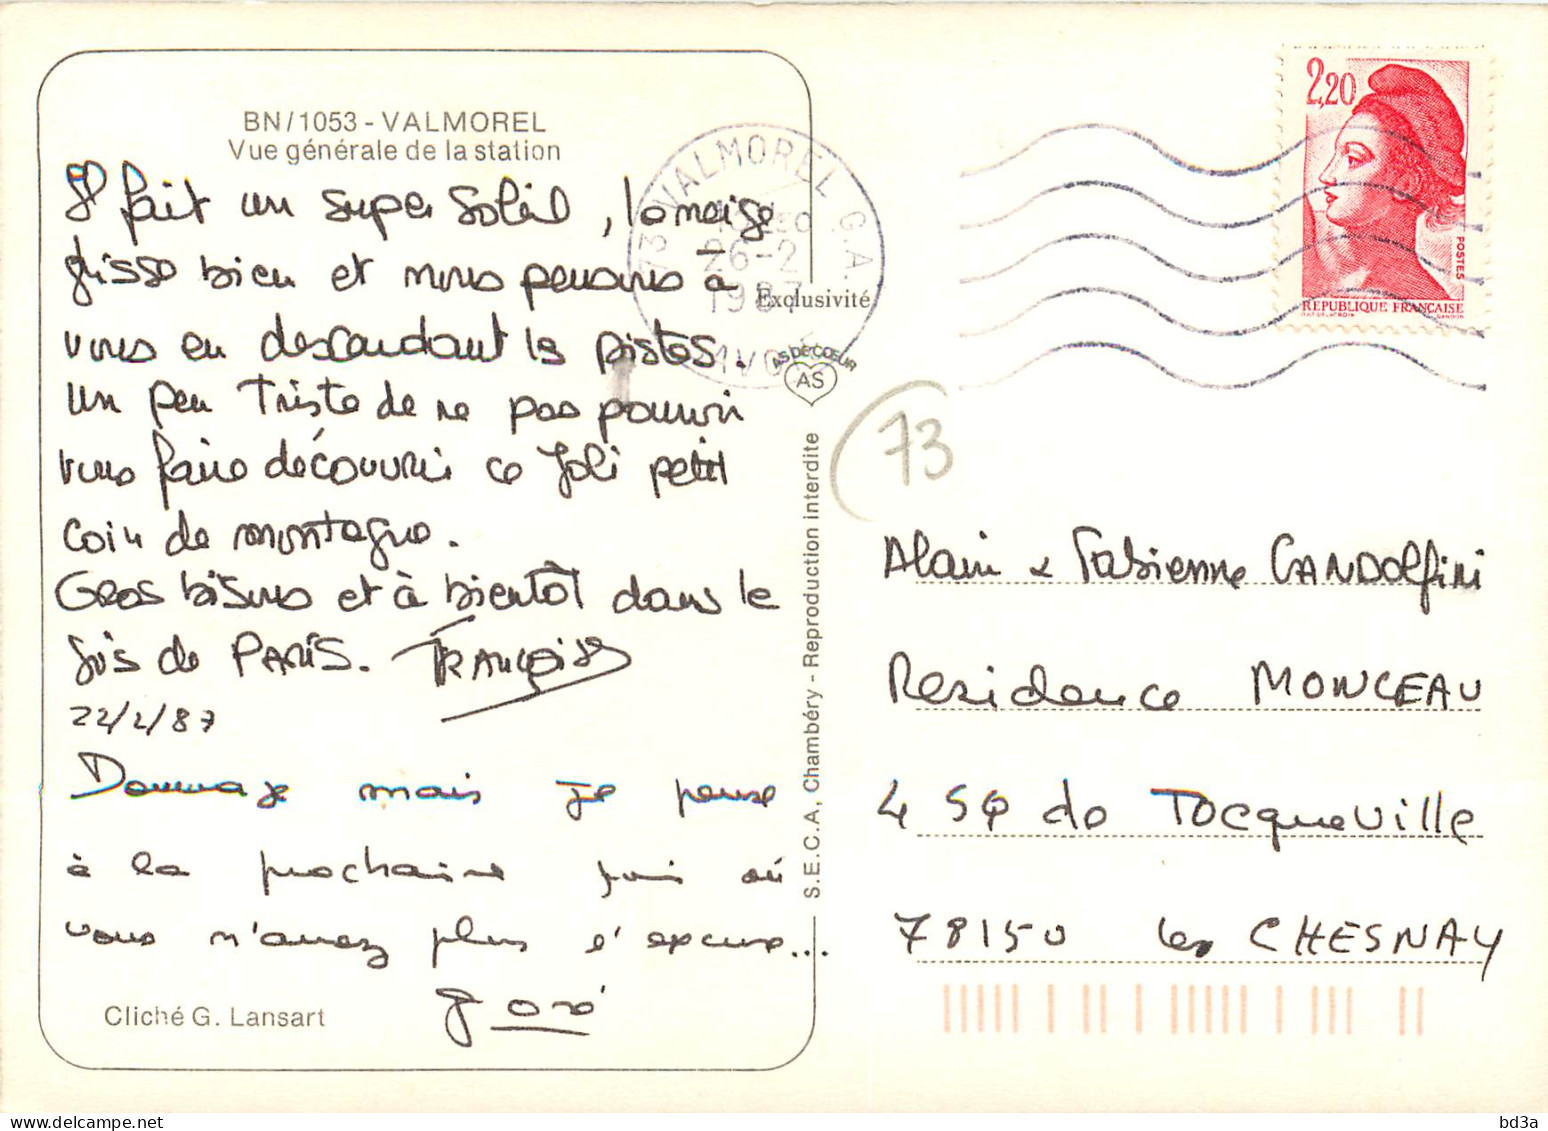 BN/1053 - VALMOREL
Vue générale de la station
Il fait un super Soleil, la neige
glisse bien et nous pensons à
vous en descendant les pistes.
Un peu Triste de ne pas pouvoir
vous faire découvrir ce Joli petit
coin de montagne.
Gros bisous et à bientôt dans le
gris de PARIS. FRANÇOISE
22/2/87
Dommage mais je pense
à la prochaine fois où
vous n'aurez plus d'excuse...
José
Cliché G. Lansart
73 VALMOREL G.A.
26-2
1987
SAVOIE
Exclusivité
AS DE CŒUR
AS
S.E.C.A, Chambéry - Reproduction interdite
73
2,20
POSTES
REPUBLIQUE FRANÇAISE
Alain & Fabienne CANDOlfini
Residence MONCEAU
4 SQ de TOCqueville
78150 Les CHESNAY
bd3a